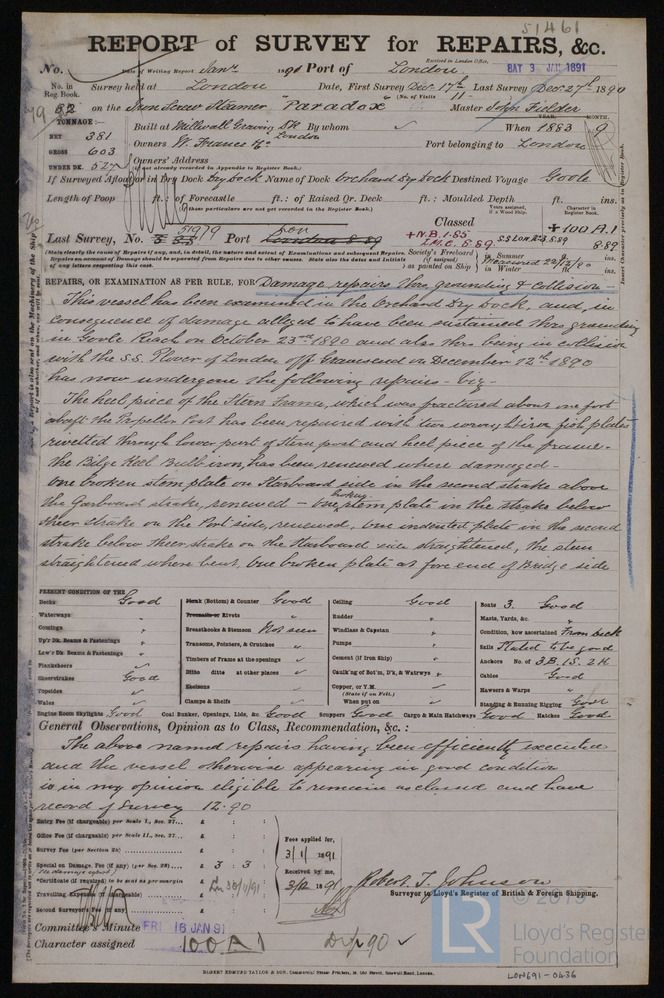 51461
REPORT of SURVEY for REPAIRS, &c.
No. Date of Writing Report Jany 1891 Port of London Received in London Office, SAT 3 JAN 1891
No. in Reg. Book. Survey held at London Date, First Survey Decr 17th Last Survey Decr 27th 1890
(No. of Visits 11)
82 on the Iron Screw Steamer "Paradox" Master John Fidder
TONNAGE:— YEAR. MONTH.
NET 381 Built at Millwall Graving Dk By whom When 1883 9
GROSS 603 Owners W. France &Co London Port belonging to London
UNDER DK. 527 Owners' Address
(if not already recorded in Appendix to Register Book.)
If Surveyed Afloat or in Dry Dock Dry Dock Name of Dock Orchard Dry Dock Destined Voyage Goole
Length of Poop ft.: of Forecastle ft.: of Raised Qr. Deck ft.: Moulded Depth ft. ins.
(these particulars are not yet recorded in the Register Book.)
Years assigned, if a Wood Ship. Character in Register Book.
Classed
51979 Bon
Last Survey, No. Port London 8.89
+N.B. 1.85
L.M.C. 8.89 S.S. Lon No 2. 8.89
+100 A.1
8.89
(State clearly the cause of Repairs if any, and, in detail, the nature and extent of Examinations and subsequent Repairs. Repairs on account of Damage should be separated from Repairs due to other causes. State also the dates and Initials of any letters respecting this case.)
Society's Freeboard (if assigned) as painted on Ship in Summer in Winter ft. ins.
REPAIRS, OR EXAMINATION AS PER RULE, FOR Damage, repairs thro grounding & Collision
This vessel has been examined in the Orchard Dry Dock, and, in
consequence of damage alleged to have been sustained thro grounding
in Goole Reach on October 23rd 1890 and also thro being in collision
with the S.S. Plover of London off Gravesend on December 12th 1890
has now undergone the following repairs - Viz -
The heel piece of the Stern Frame, which was fractured about one foot
abaft the Propellor Post has been repaired with two wrought iron fish plates
rivetted through lower part of stern post and heel piece of the frame -
the Bilge Keel Bulb iron, has been renewed where damaged -
One broken stem plate on Starboard side in the second strake above
the Garboard strake, renewed - One broken stem plate in the strake below
sheer strake on the Port side, renewed, One indented plate in the second
strake below sheer strake on the Starboard side straightened, the stem
straightened where bent, One broken plate at fore end of Bridge side
PRESENT CONDITION OF THE
Decks Good
Waterways "
Comings "
Up'r Dk. Beams & Fastenings "
Low'r Dk. Beams & Fastenings "
Planksheers
Sheerstrakes Good
Topsides
Wales
Engine Room Skylights Good
Plank (Bottom) & Counter Good
Treenails or Rivets "
Breasthooks & Stemson Not seen
Transoms, Pointers, & Crutches
Timbers of Frame at the openings
Ditto ditto at other places
Keelsons
Clamps & Shelfs
Coal Bunker, Openings, Lids, &c. Good
Ceiling Good
Rudder "
Windlass & Capstan "
Pumps "
Cement (if Iron Ship) "
Caulk'ng of Bot'm, D'k, & Watrwys
Copper, or Y.M.
(State if on Felt.)
When put on
Scuppers Good Cargo & Main Hatchways Good
Boats 3. Good
Masts, Yards, &c. "
Condition, how ascertained From Deck
Sails Stated to be good
Anchors No. of 3B. 1S. 2K
Cables Good
Hawsers & Warps "
Standing & Running Rigging Good
Hatches Good
General Observations, Opinion as to Class, Recommendation, &c.:
The above named repairs having been efficiently executed
and the vessel otherwise appearing in good condition
is in my opinion eligible to remain as classed and have
record of Survey 12.90
Entry Fee (if chargeable) per Scale I., Sec. 27... £ : :
Office Fee (if chargeable) per Scale II., Sec. 27... £ : :
Survey Fee (per Section 28)... £ : :
Special or Damage Fee (if any) (per Sec. 28)... £ 3 : 3
*Certificate (if required) to be sent as per margin
Travelling Expenses (if chargeable) £
Second Surveyor's Fee (if any) £
Fees applied for, 3/1/1891
Received by me,
1891
Robert T. Johnson
Surveyor to Lloyd's Register of British & Foreign Shipping.
Committee's Minute FRI 16 JAN 91
Character assigned 100A1
ROBERT EDMUND TAYLOR & SON, Commercial Steam Printers, 19, Old Street, Goswell Road, London.
© 2019
LR
Lloyd's Register
Foundation
LON691-0436